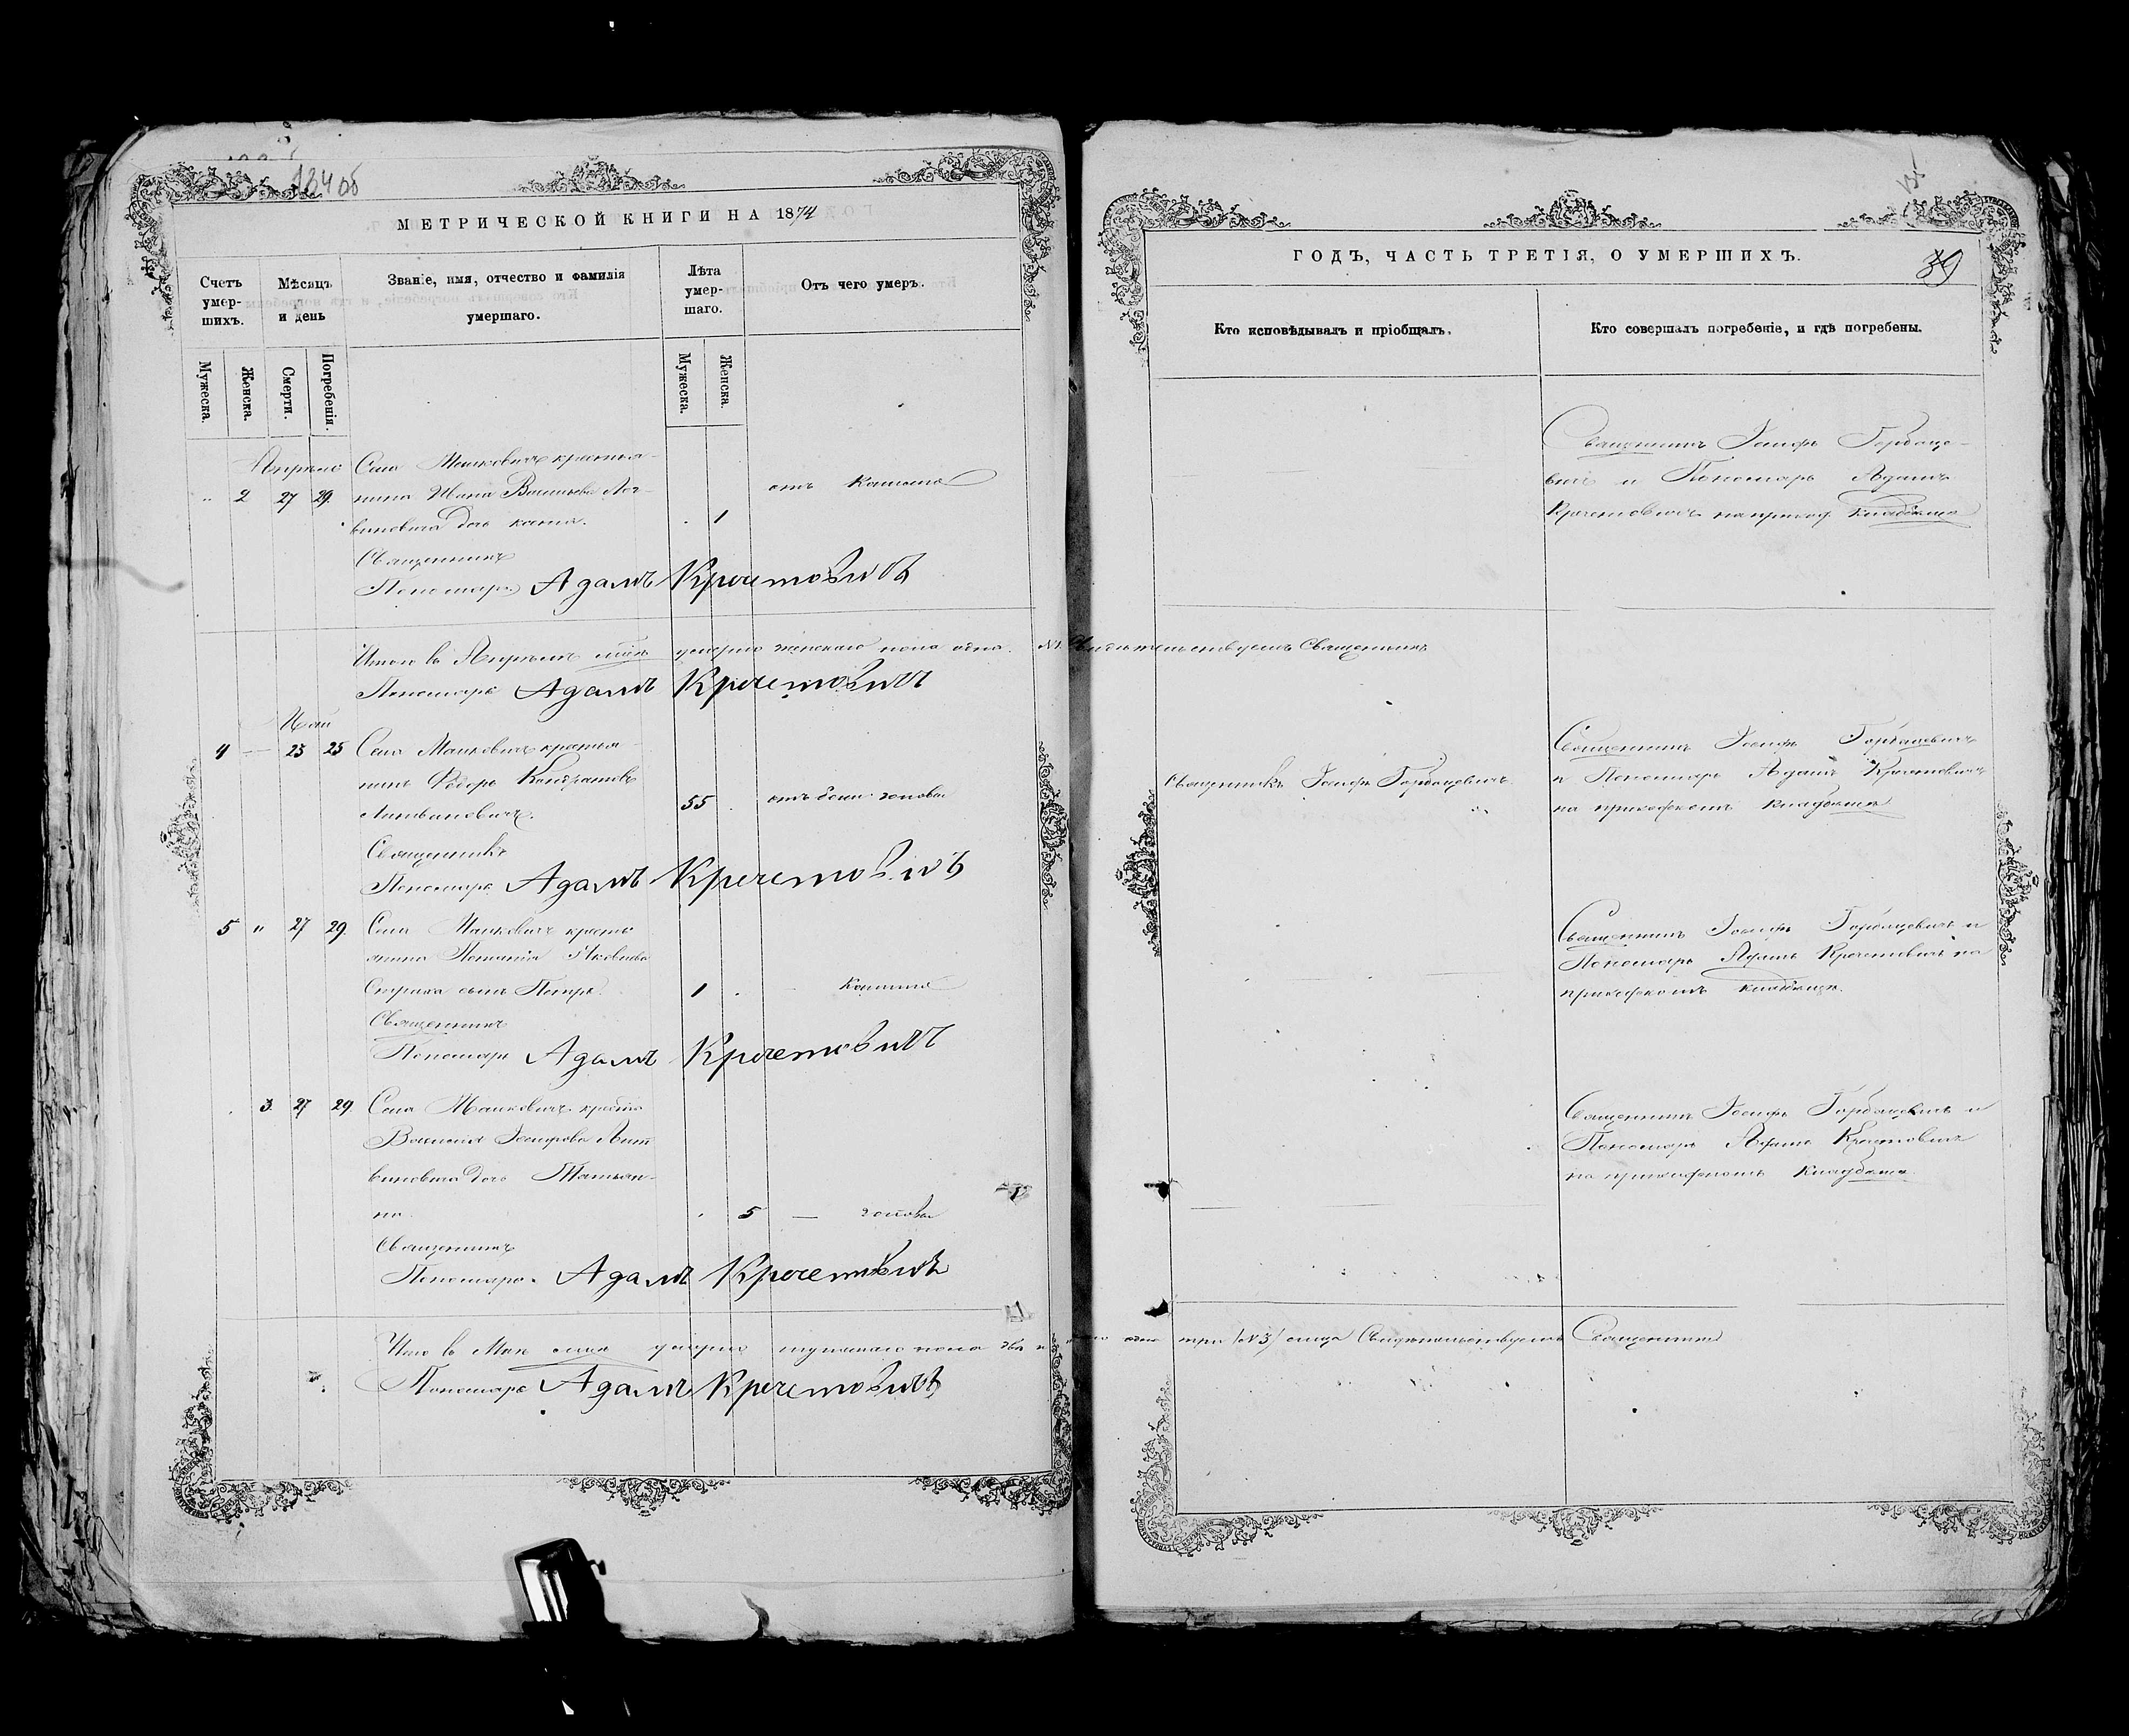 124 об
МЕТРИЧЕСКОЙ КНИГИ НА 1874
Счетъ умер-шихъ.
Мѣсяцъ и день
Званіе, имя, отчество и фамилія умершаго.
Лѣта умер-шаго.
Отъ чего умеръ.
Мужеска.
Женска.
Смерти.
Погребенія.
Мужеска.
Женска.
Апрѣль
Села Малковичъ крестья-
" 2 27 29. нина Ивана Васильева Лит-
виновича дочь
1
отъ Кашля
Священникъ
Пономарь Адамъ Кречетовичъ
Итого въ Апрѣлѣ мцѣ умерло женскаго пола одна. №1. Свидѣтельствуемъ Священникъ
Пономарь Адамъ Кречетовичъ
Май
4 — 23 25 Села Малковичъ крестья-
нинъ Ѳедоръ Кондратовъ
Литвиновичъ.
55
отъ боли головы
Священникъ
Пономарь Адамъ Кречетовичъ
5 " 27 29. Села Малковичъ кресть
янина Яковлева
сынъ Петръ.
1 Кашля
Священникъ
Пономарь Адамъ Кречетовичъ
3. 27 29. Села Малковичъ
Василія Іосифова Лит
виновича дочь Татьян-
на.
5 — головы
Священникъ
Пономарь Адамъ Кречетовичъ
Итого въ Маѣ умерло мужескаго пола два и одна три /№3/ лица Свидѣтельствуемъ Священникъ
Пономарь Адамъ Кречетовичъ
ГОДЪ, ЧАСТЬ ТРЕТІЯ, О УМЕРШИХЪ.
39
Кто исповѣдывалъ и пріобщалъ.
Кто совершалъ погребеніе, и гдѣ погребены.
Священникъ Іосифъ Горбаце-
вичъ и Пономарь Адамъ
Кречетовичъ на приход. кладбищѣ
Священникъ Іосифъ Горбацевичъ
Священникъ Іосифъ Горбацевичъ
и Пономарь Адамъ Кречетовичъ
на приходскомъ кладбищѣ
Священникъ Іосифъ Горбацевичъ и
Пономарь Адамъ Кречетовичъ на
приходскомъ кладбищѣ.
Священникъ Іосифъ Горбацевичъ и
Пономарь Адамъ Кречетовичъ
на приходскомъ кладбищѣ